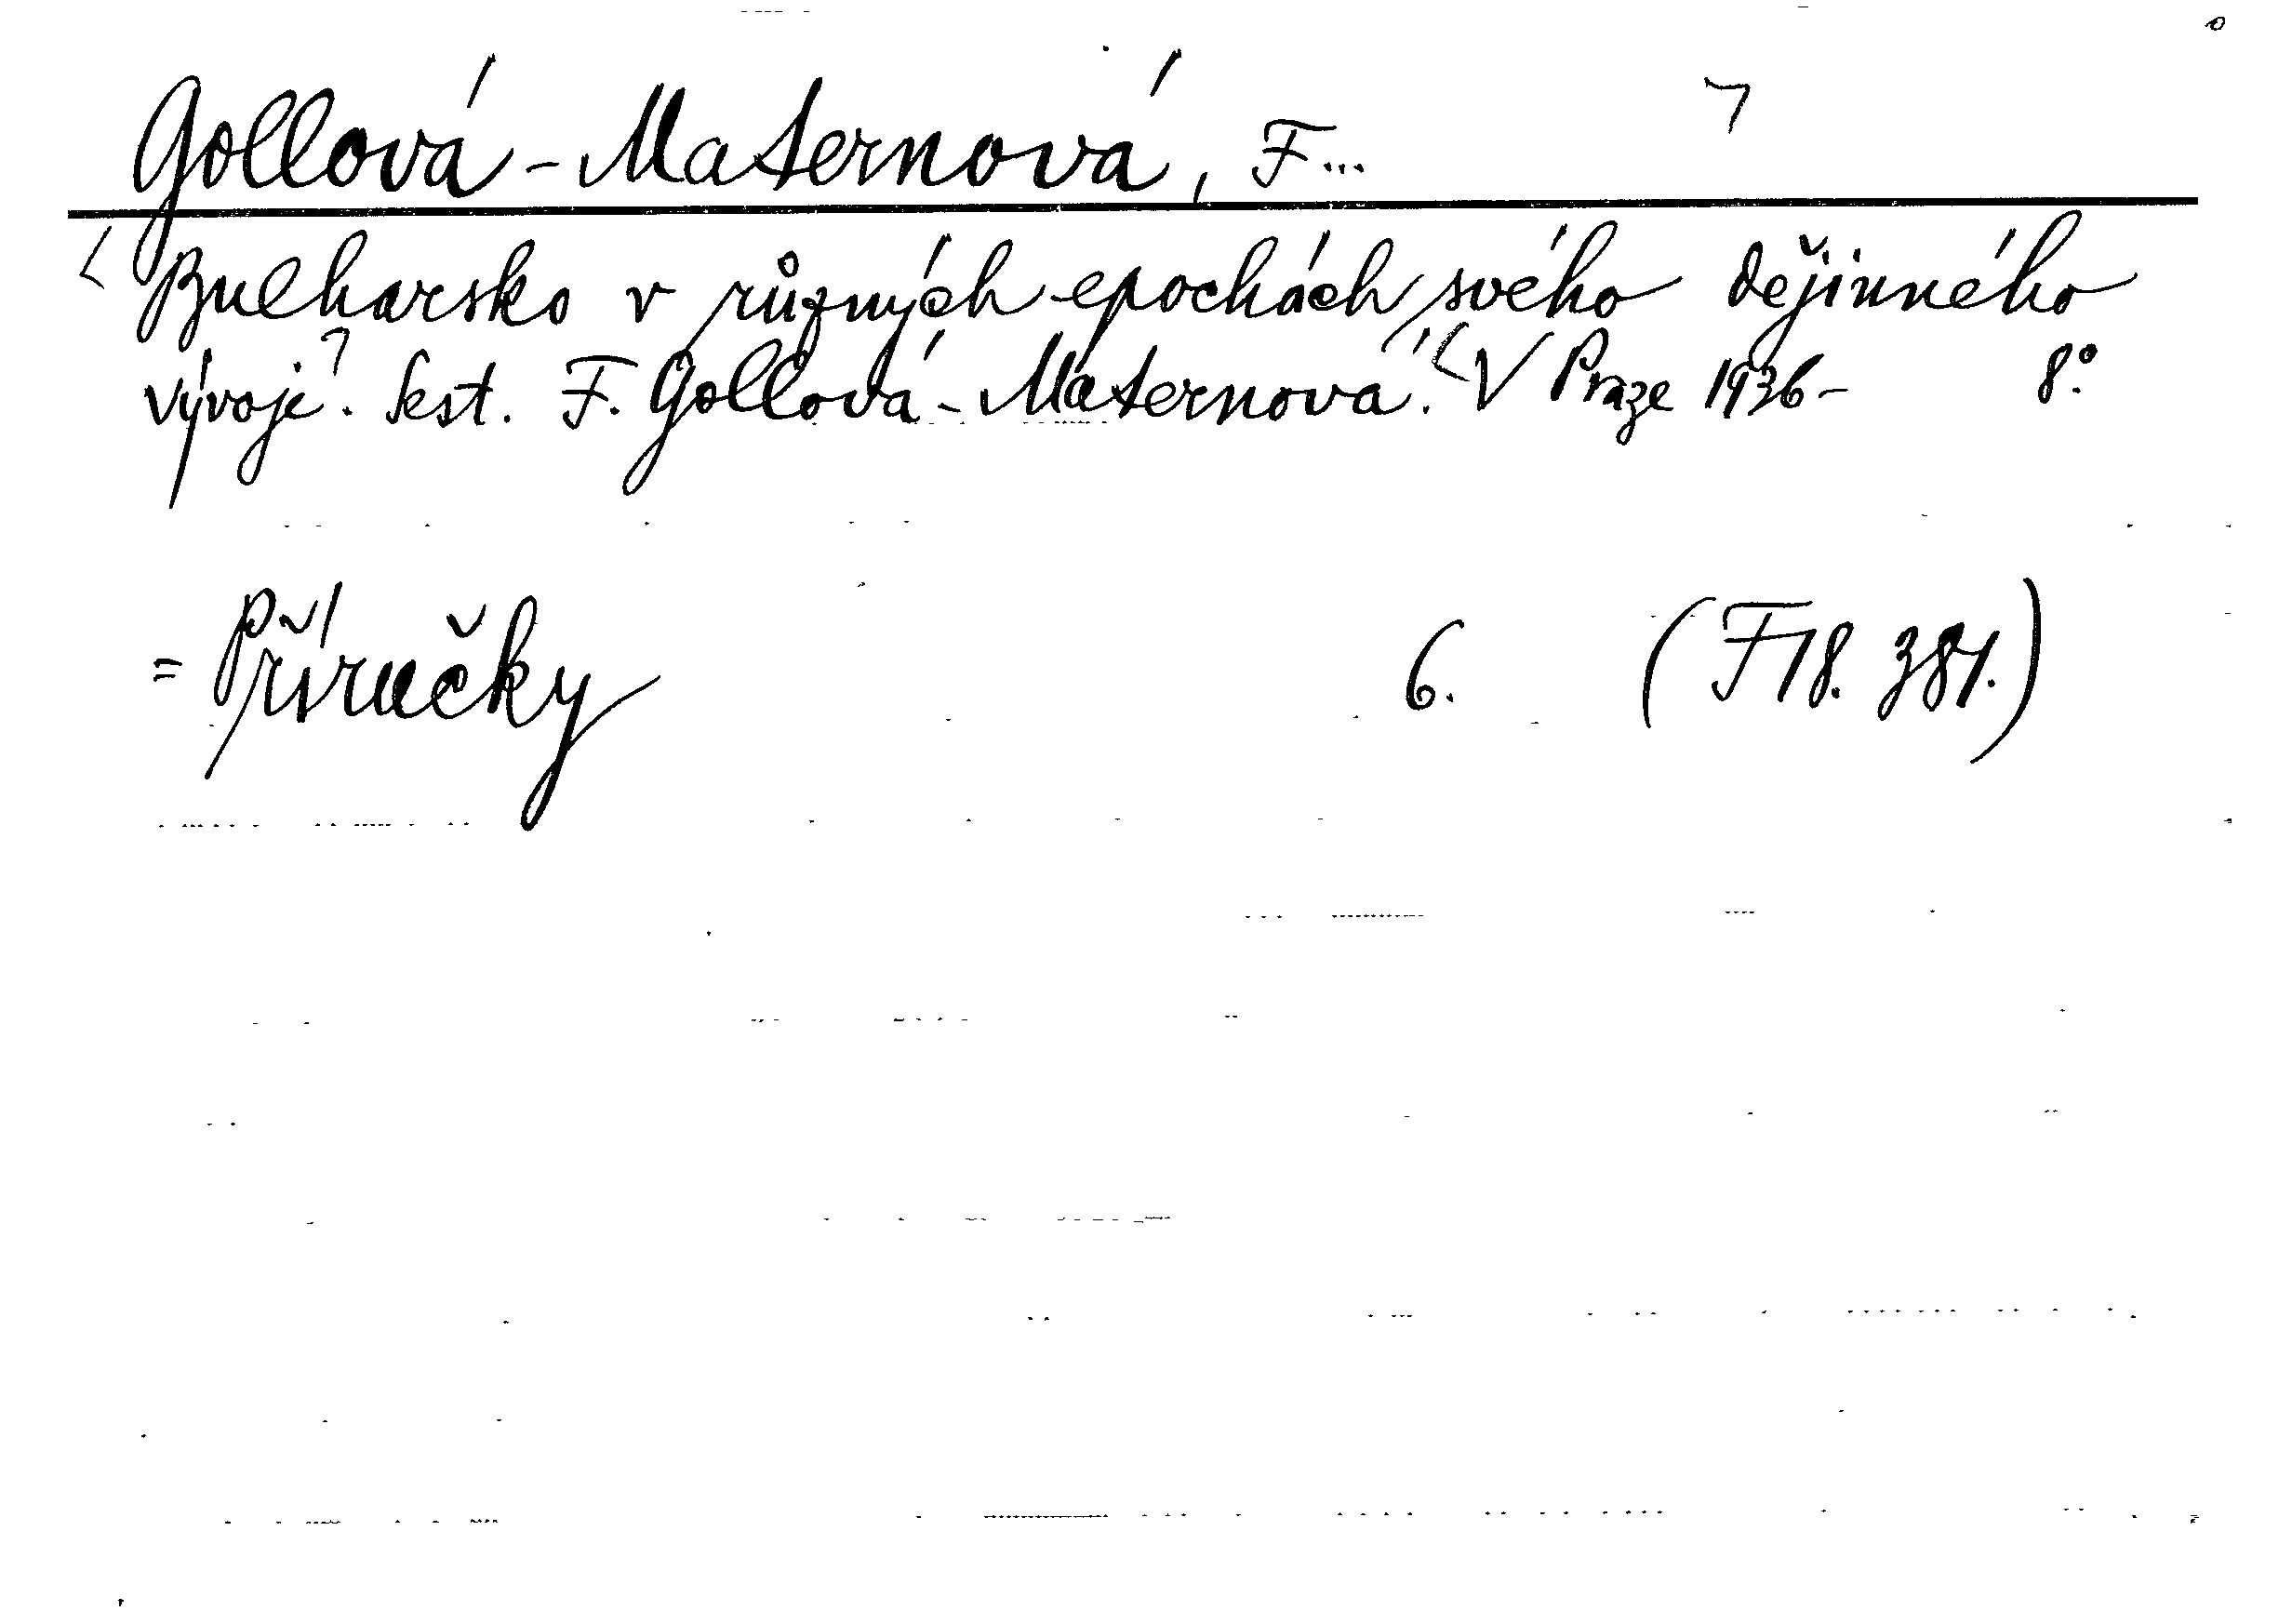 Gollová-Maternová, F...
Bulharsko v různých epochách svého dějinného
vývoje. Sest. F. Gollová-Maternová. V Praze 1936- 8°.
= Příručky 6. (F18.381.)